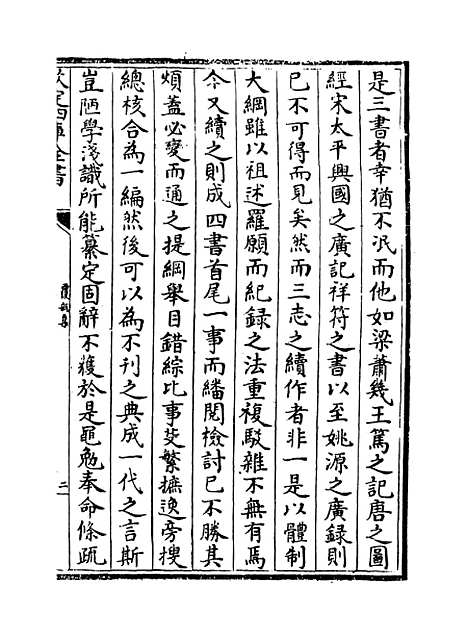 是三書者幸猶不泯而他如梁蕭幾王篤之記唐之圖
經宋太平興國之廣記祥符之書以至姚源之廣録則
已不可得而見矣然而三志之續作者非一是以體制
大綱雖以祖述羅願而紀録之法重複駁雜不無有焉
今又續之則成四書首尾一事而繙閱檢討已不勝其
煩蓋必變而通之提綱舉目錯綜比事芟繁摭逸旁搜
總核合為一編然後可以為不刋之典成一代之言斯
豈陋學淺識所能纂定固辭不獲於是黽勉奉命條疏
欽定四庫全書
二